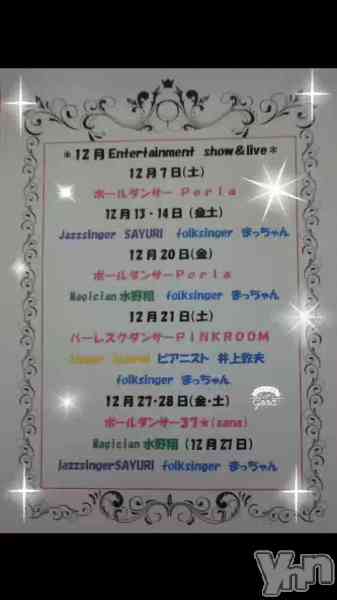 *12月Entertainment show&live*
12月7日(土)
ポールダンサー Perla
12月13・14日(金土)
Jazzsinger SAYURI folksinger まっちゃん
12月20日(金)
ポールダンサーPerla
Magician水野翔 folksinger まっちゃん
12月21日(土)
バーレスクダンサーPINKROOM
ピアニスト 井上敦夫
folksinger まっちゃん
12月27-28日(金・土)
ポールダンサー37★(sana)
Magician水野翔(12月27日)
JazzsingerSAYURI folksinger まっちゃん